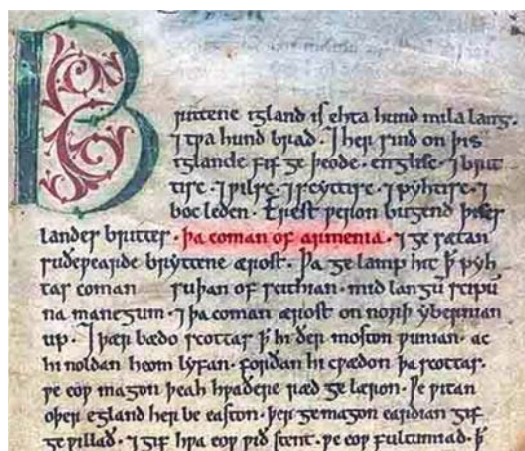 Brittene igland is ehta hund mila lang.
⁊ tƿa hund brad. ⁊ her sind on þis
iglande fif ge þeode. englisc. ⁊ brit
tisc. ⁊ ƿilsc. ⁊ scyttisc. ⁊ pyhtisc. ⁊
boc leden. Erest ƿeron bugend þises
landes brittes. þa coman of armenia. ⁊ ge sætan
suðeƿearde bryttene ærost. Þa ge lamp hit ꝥ pyh
tas coman suþan of scithian. mid langū scipū
na manegum. ⁊ þa coman ærost on norþ ybernian
up. ⁊ þær bædo scottas ꝥ hi ðer moston ƿunian. ac
hi noldan heom lyfan. forðan hi cƿædon þa scottas.
ƿe eoƿ magon þeah hƿaðere ræd ge læron. Ƿe ƿitan
oþer egland her be easton. þer ge magon eardian gif
ge ƿillað. ⁊ gif hƿa eoƿ ƿið stent. ƿe eoƿ fultumiað. ꝥ